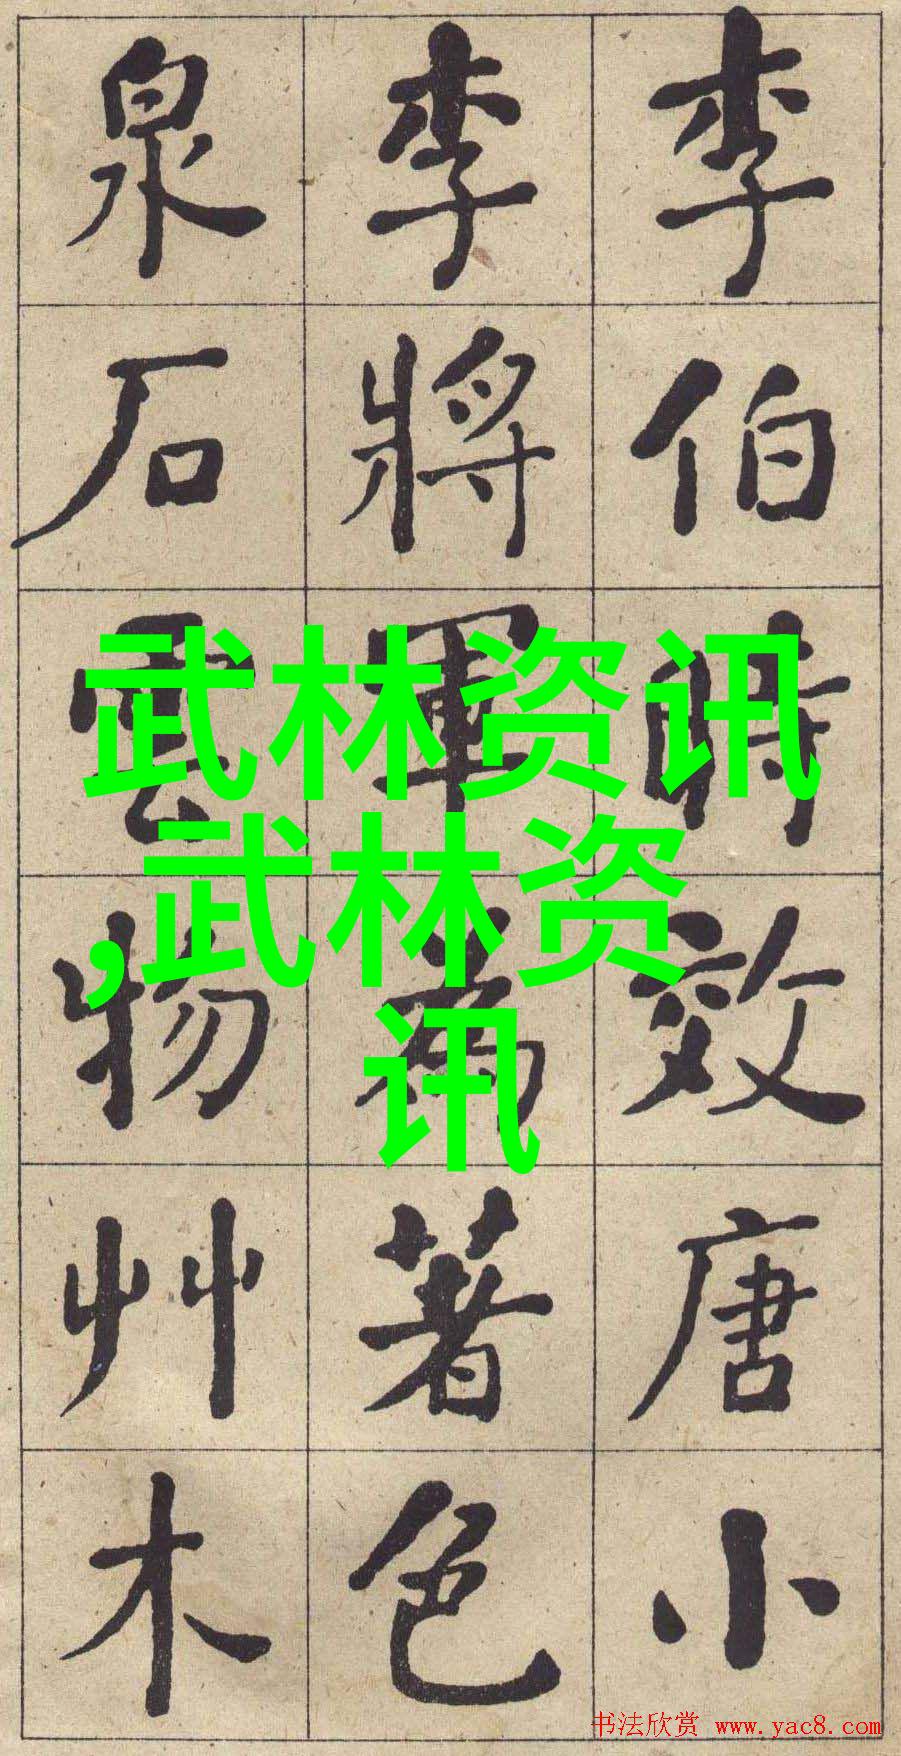 李伯時效唐小
李將軍為著色
泉石雲物艸木
武林资讯
,武林资
讯
书法欣赏 www.yac8.com